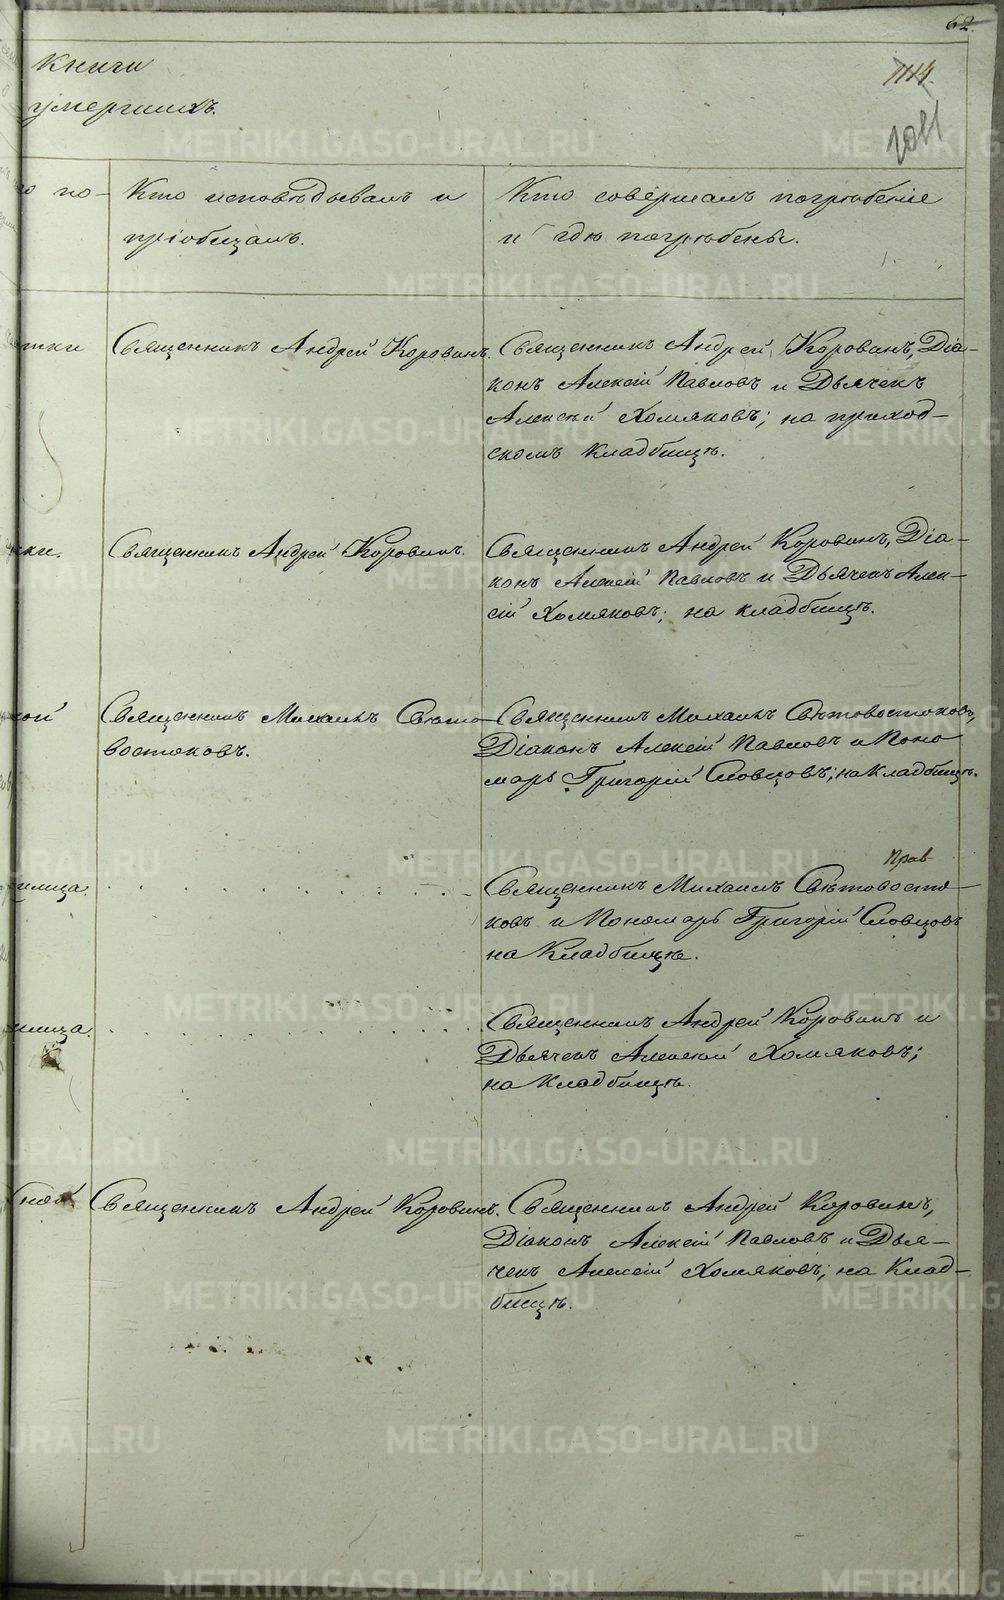 62
1114.
Книги
умершихъ.
по-
Кто исповѣдывалъ и
пріобщалъ.
Кто совершалъ погребеніе
и гдѣ погребены.
Священникъ Андрей Коровинъ.
Священникъ Андрей Коровинъ, Діа-
конъ Алексій Павловъ и Дьячекъ
Алексѣй Хомяковъ; на приход-
скомъ кладбищѣ.
Священникъ Андрей Коровинъ.
Священникъ Андрей Коровинъ, Діа-
конъ Алексій Павловъ и Дьячекъ Алек-
сій Хомяковъ; на кладбищѣ.
Священникъ Михаилъ Свѣто-
востоковъ.
Священникъ Михаилъ Свѣтовостоковъ,
Діаконъ Алексій Павловъ и Поно
марь Григорій Словцовъ; на кладбищѣ.
Прав
Священникъ Михаилъ Свѣтовосто-
ковъ и Пономарь Григорій Словцовъ
на Кладбищѣ.
Священникъ Андрей Коровинъ и
Дьячекъ Алексѣй Хомяковъ;
на Кладбищѣ.
Священникъ Андрей Коровинъ.
Священникъ Андрей Коровинъ,
Діаконъ Алексій Павловъ и Дья-
чекъ Алексій Хомяковъ; на Клад-
бищѣ.
METRIKI.GASO-URAL.RU